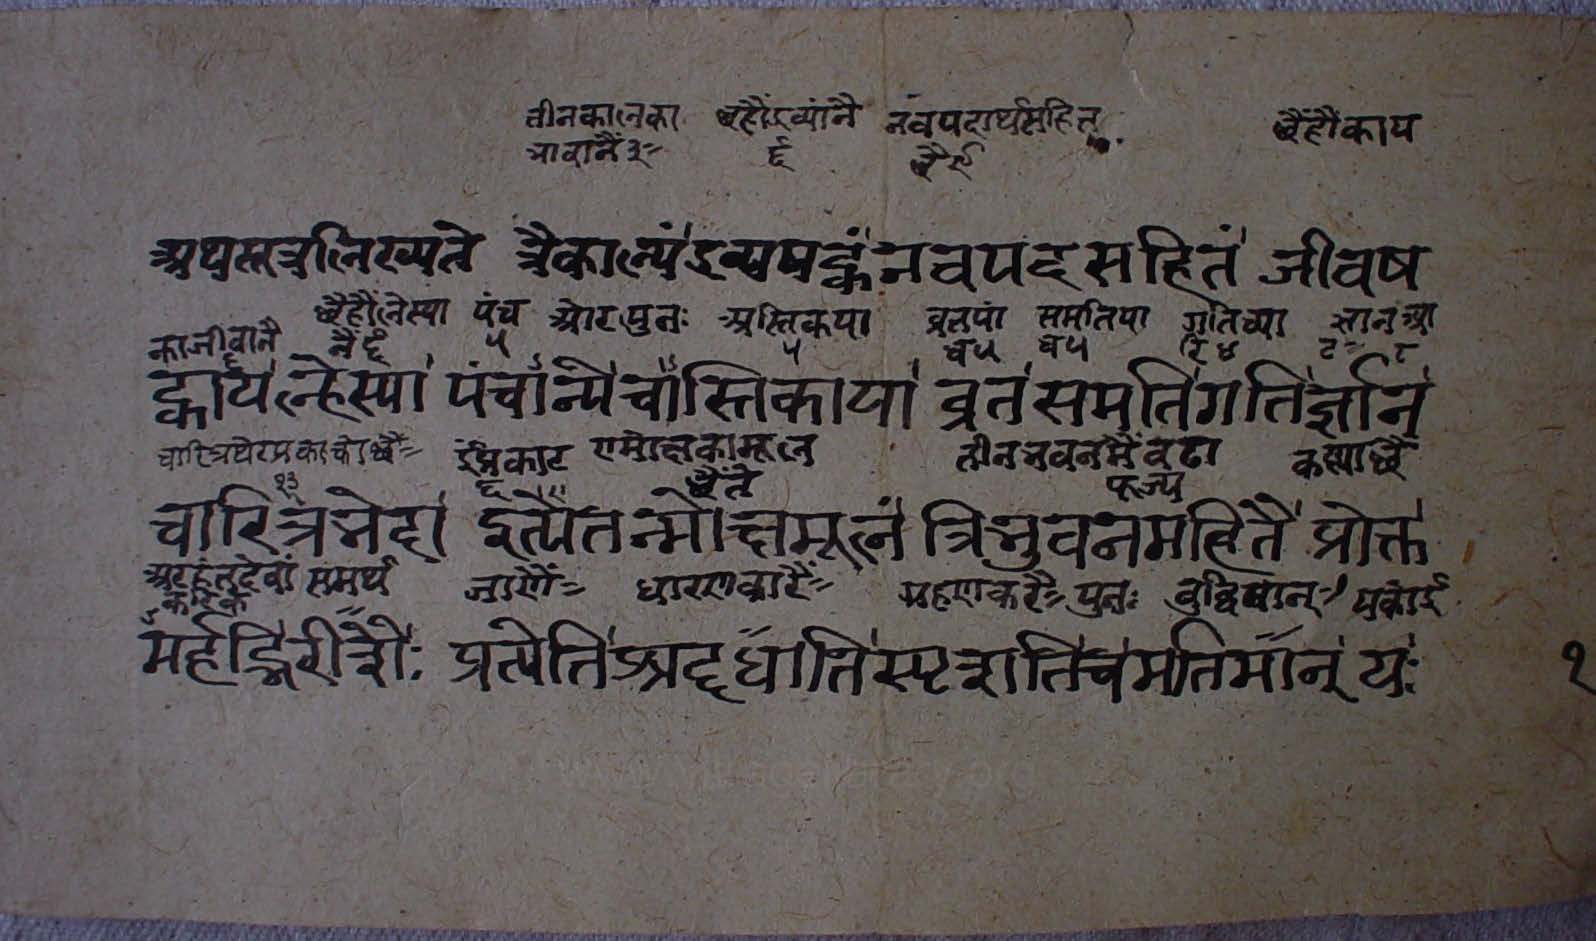 तीनकालका छहौंद्रव्यांनै नवपदार्थसहित छैहौंकाय
६
अथसूत्रलिख्यते त्रैकाल्यंद्रव्यषट्कंनवपदसहितं जीवष
छैहौंलेस्या पंच औरपुनः अस्तिकया व्रतपां समतिपा गतिच्या
काजीवानै नैं६ ५ ५ च५ च५ रि४
ट्कायलेस्या पंचान्येचास्तिकाया व्रतसमतिगतिर्ज्ञान
ईंप्रकार एमोक्षकामूल तीनभवनमैंबडा कह्याछै
१३ ६ छैंते पूज्य
चारित्रभेदा इत्यैतन्मोक्षमूलं त्रिभुवनमहितै प्रोक्त
अरहंतदेवां समर्थ जाणैं= धारणकरैं= ग्रहणकरै= पुनः बुद्धिवान्=
करिकै
मर्हद्भिरीशैः प्रत्येतिश्रद्दधातिस्पृशतिचमतिमान् यः
१